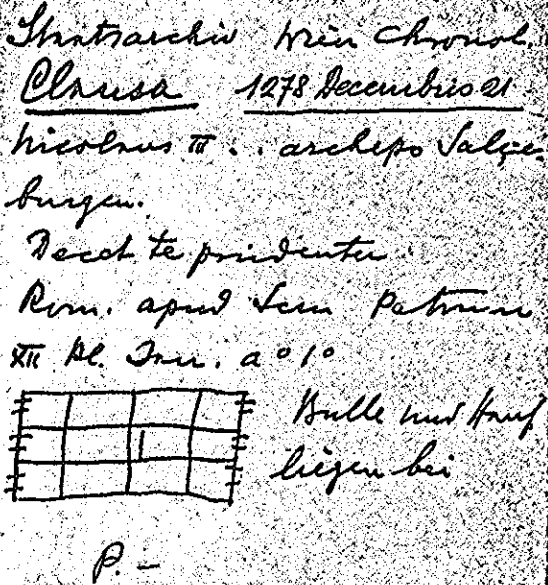 Staatsarchiv Wien Chronol.
Clausa 1278 Decembris 21
Nicolaus III . . archiepo Salze-
burgen.
Decet te prudenter
Rom. apud Scm Petrum
XII Kl. Jan. a° 1°
Bulle und Hanf
liegen bei
P. –